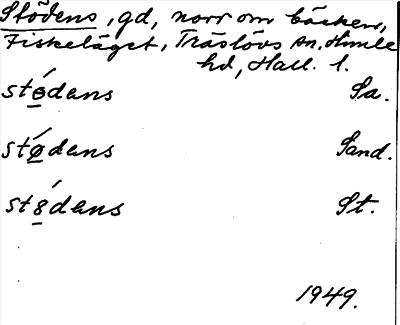 Stödens, gd, norr om bäcken,
Fiskeläget, Träslövs sn, Himle
hd, Hall. l.
stǿdens Sa.
stǿdens Sand.
st8́dens St.
1949.